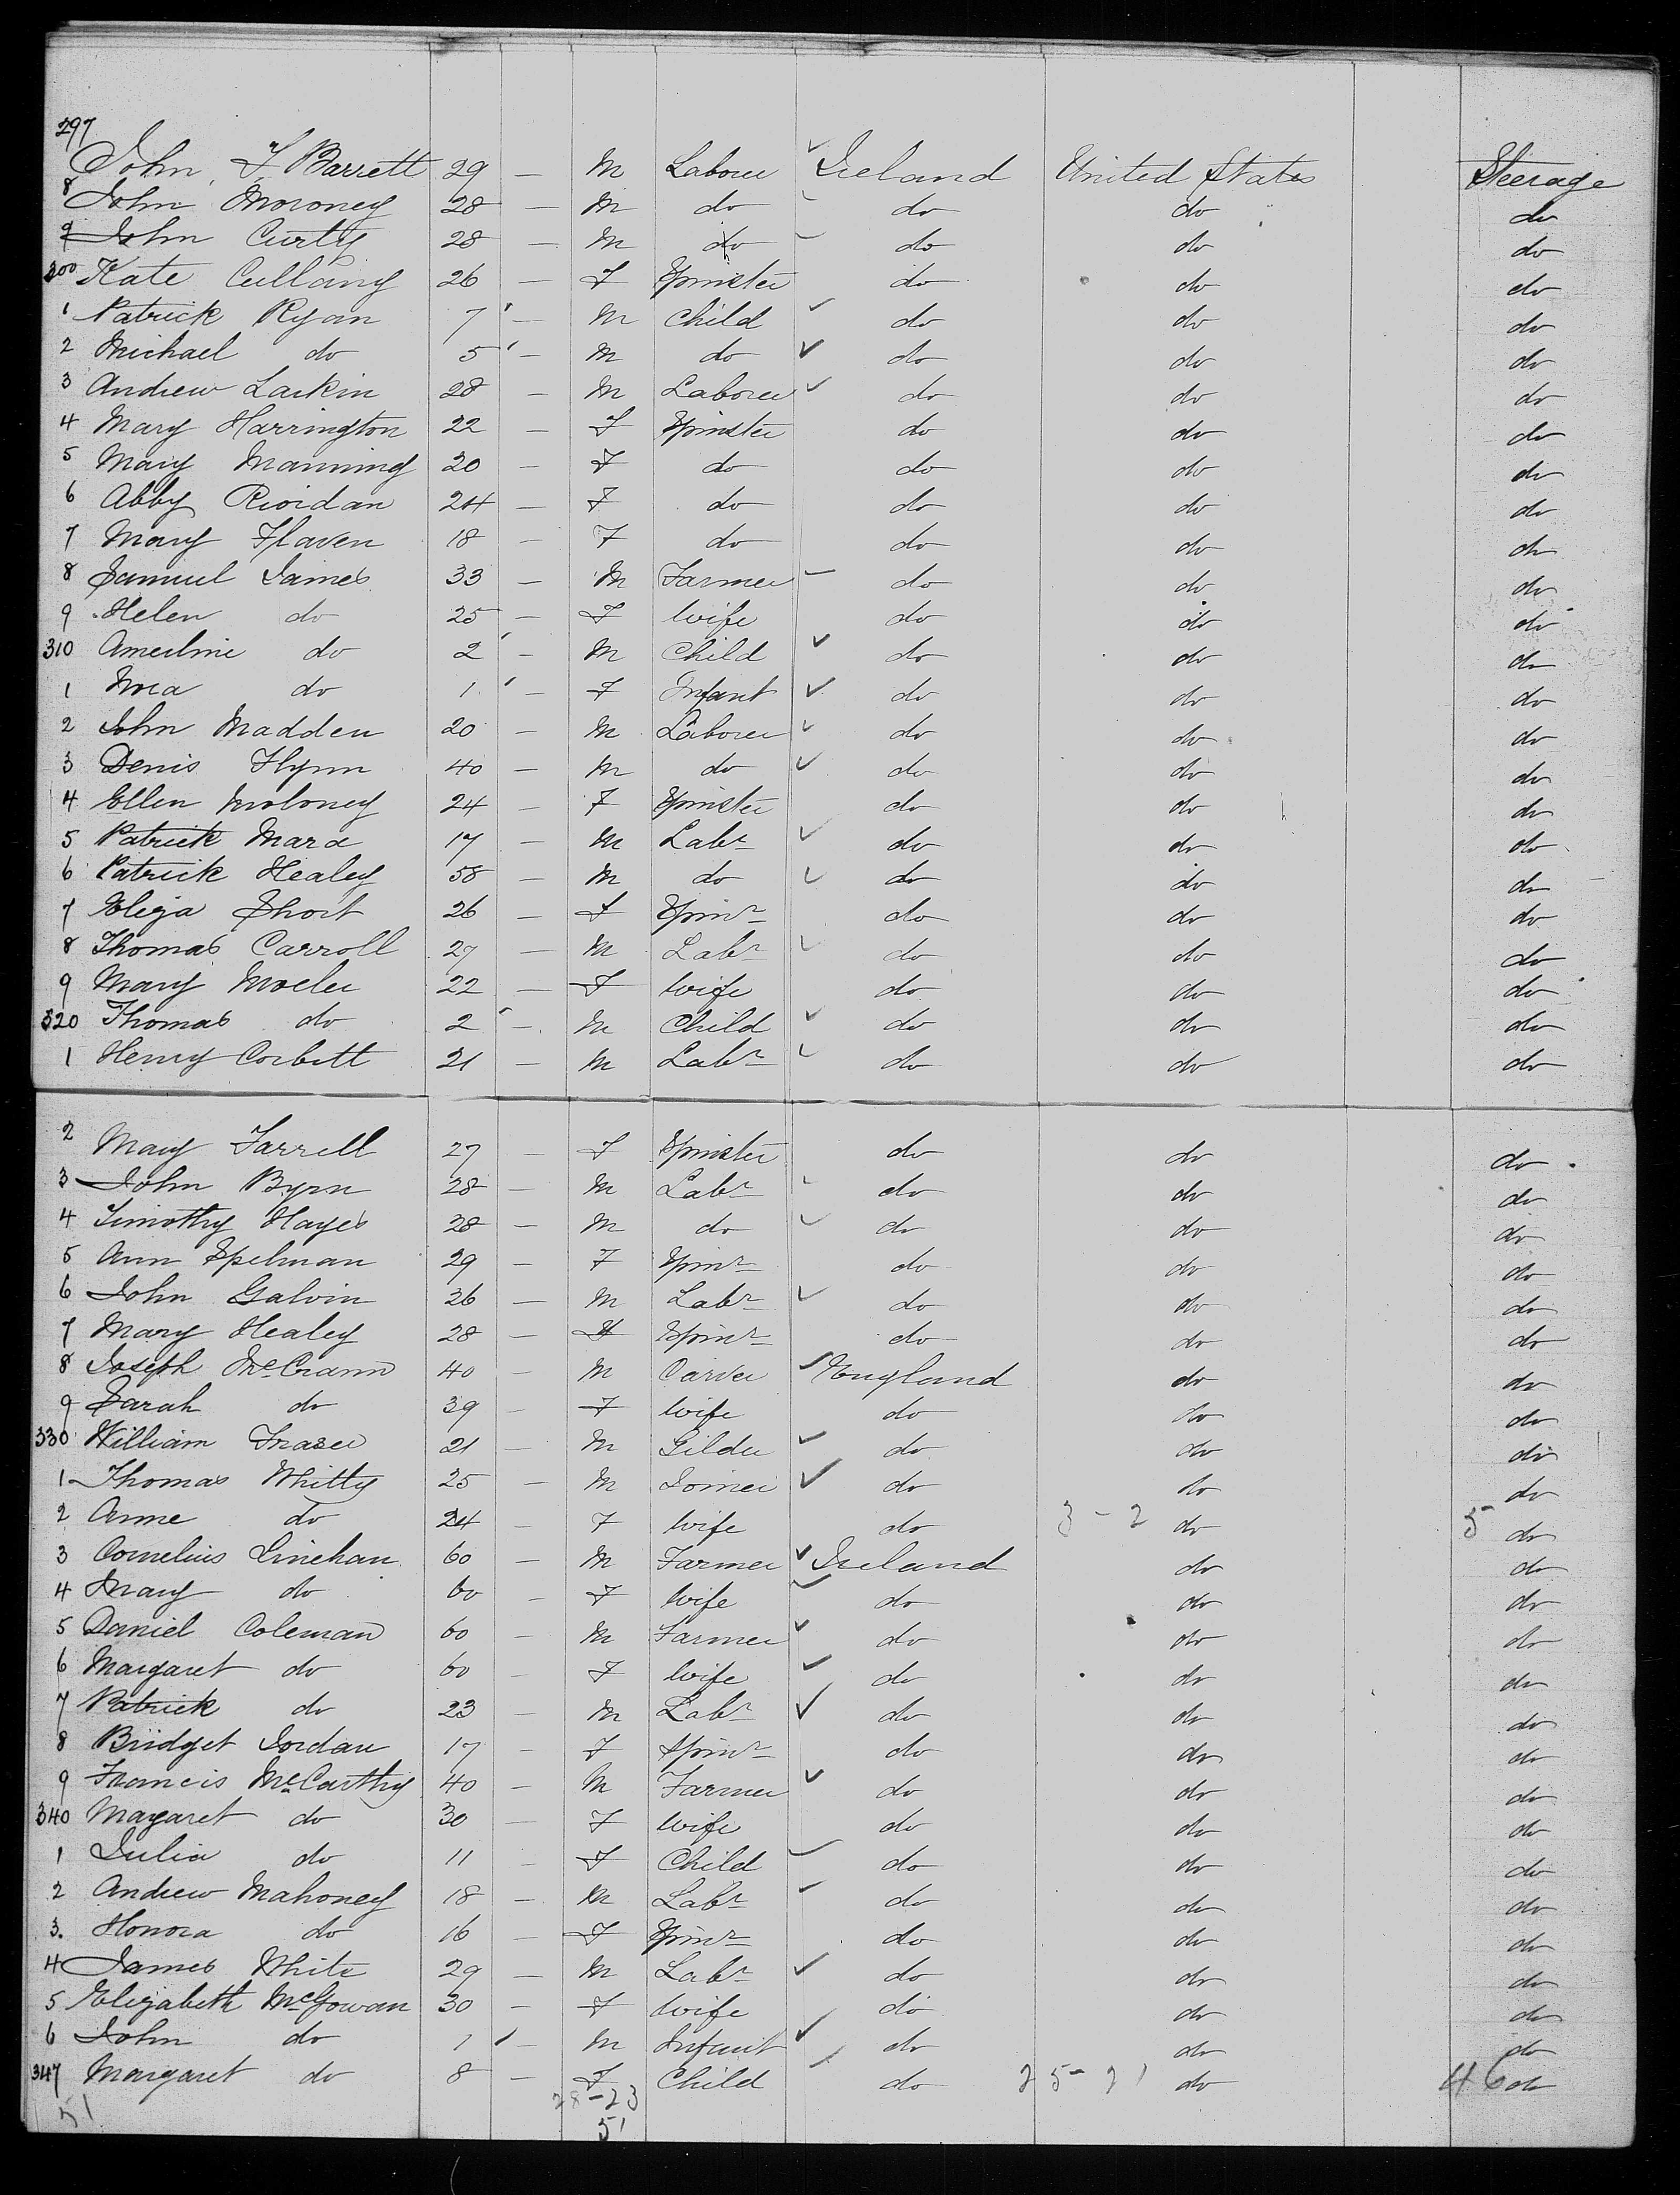 297 John F. Barrett 29 — M Laborer Ireland United States Steerage
8 John Moroney 28 — M do do do do
9 John Curty 28 — M do do do do
300 Kate 26 — F Spinster do do do
1 Patrick Ryan 7 — M Child do do do
2 Michael do 5 — M do do do do
3 Andrew Larkin 28 — M Laborer do do do
4 Mary Harrington 22 — F Spinster do do do
5 Mary Manning 20 — F do do do do
6 Abby Riordan 24 — F do do do do
7 Mary Flaven 18 — F do do do do
8 Samuel James 33 — M Farmer do do do
9 Helen do 25 — F Wife do do do
310 do 2 — M Child do do do
1 Nora do 1 — F Infant do do do
2 John Madden 20 — M Laborer do do do
3 Denis Flynn 40 — M do do do do
4 Ellen Moloney 24 — F Spinster do do do
5 Patrick Mara 17 — M Labr do do do
6 Patrick Healey 58 — M do do do do
7 Eliza Short 26 — F Spinr do do do
8 Thomas Carroll 27 — M Labr do do do
9 Mary 22 — F Wife do do do
320 Thomas do 2 — M Child do do do
1 Henry Corbett 21 — M Labr do do do
2 Mary Farrell 27 — F Spinster do do do
3 John Byrn 28 — M Labr do do do
4 Timothy Hayes 28 — M do do do do
5 Ann Spelman 29 — F Spinr do do do
6 John Galvin 26 — M Labr do do do
7 Mary Healey 28 — F Spinr do do do
8 Joseph McCrann 40 — M Carver England do do
9 Sarah do 39 — F Wife do do do
330 William Fraser 21 — M Gilder do do do
1 Thomas Whitty 25 — M Joiner do do do
2 Anne do 24 — F Wife do 3 - 2 do 5 do
3 Cornelius Linehan 60 — M Farmer Ireland do do
4 Mary do 60 — F Wife do do do
5 Daniel Coleman 60 — M Farmer do do do
6 Margaret do 60 — F Wife do do do
7 Patrick do 23 — M Labr do do do
8 Bridget Jordan 17 — F Spinr do do do
9 Francis McCarthy 40 — M Farmer do do do
340 Margaret do 30 — F Wife do do do
1 Julia do 11 — F Child do do do
2 Andrew Mahoney 18 — M Labr do do do
3. Honora do 16 — F Spinr do do do
4 James White 29 — M Labr do do do
5 Elizabeth McGowan 30 — F Wife do do do
6 John do 1 — M Infant do do do
347 Margaret do 8 — F Child do 25 - 21 do 46 do
51 28 - 23
51